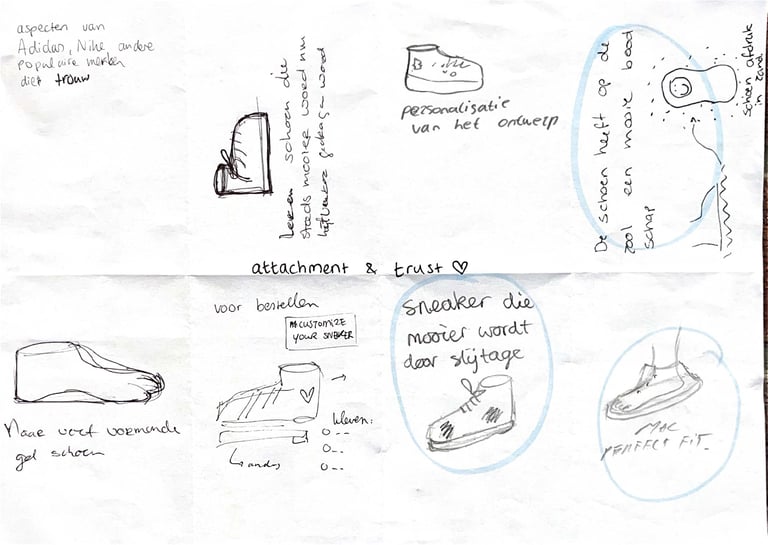 aspecten van
Adidas, Nike, andere
populaire merken
die trouw
Leren schoen die
steeds mooier word nm
gedragen word
B
personalisatie
van het ontwerp
De schoen heeft op de
zool een mooie bood
schap
schoen afdruk
in zand
attachment & trust ♡
Naar voet vormende
gel schoen
voor bestellen
CUSTOMIZE
YOUR SNEAKER
kleuren:
anders
sneaker die
mooier wordt
door slijtage
PERFECT FIT.